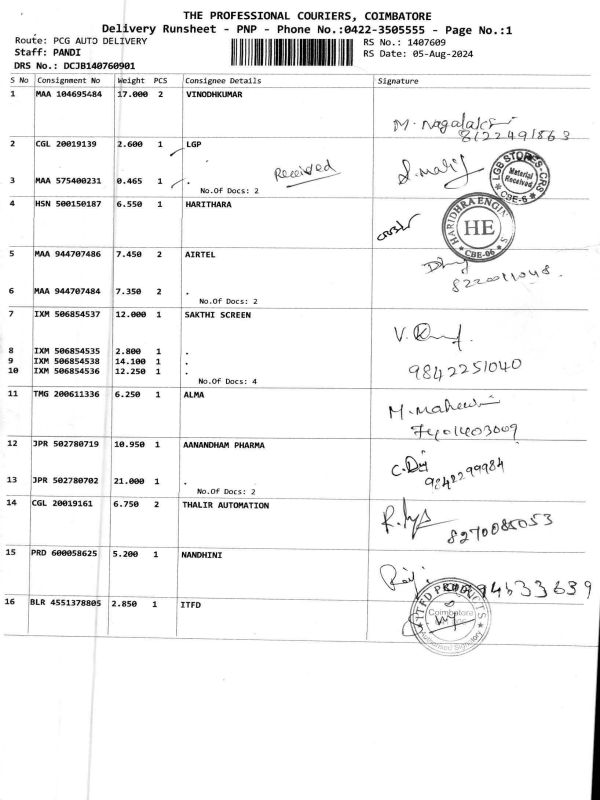 THE PROFESSIONAL COURIERS, COIMBATORE
Delivery Runsheet - PNP - Phone No.:0422-3505555 - Page No.:1
Route: PCG AUTO DELIVERY RS No.: 1407609
Staff: PANDI RS Date: 05-Aug-2024
DRS No.: DCJB140760901
S No Consignment No Weight PCS Consignee Details Signature
1 MAA 104695484 17.000 2 VINODHKUMAR
M. Nagalaksmi
8122491863
2 CGL 20019139 2.600 1 LGP
Received
LGB STORES-CRS
Material Received
CBE-6
3 MAA 575400231 0.465 1 .
No.Of Docs: 2
4 HSN 500150187 6.550 1 HARITHARA
HARIDHRA ENGINS
HE
CBE-06
5 MAA 944707486 7.450 2 AIRTEL
6 MAA 944707484 7.350 2 .
No.Of Docs: 2
7 IXM 506854537 12.000 1 SAKTHI SCREEN
8 IXM 506854535 2.800 1 .
9 IXM 506854538 14.100 1 .
9842251040
10 IXM 506854536 12.250 1 .
No.Of Docs: 4
11 TMG 200611336 6.250 1 ALMA
M. Maheswi
12 JPR 502780719 10.950 1 AANANDHAM PHARMA
9842299984
13 JPR 502780702 21.000 1 .
No.Of Docs: 2
14 CGL 20019161 6.750 2 THALIR AUTOMATION
8270085053
15 PRD 600058625 5.200 1 NANDHINI
16 BLR 4551378805 2.850 1 ITFD
ITFD PRODUCTS
Coimbatore
Authorised Signatory